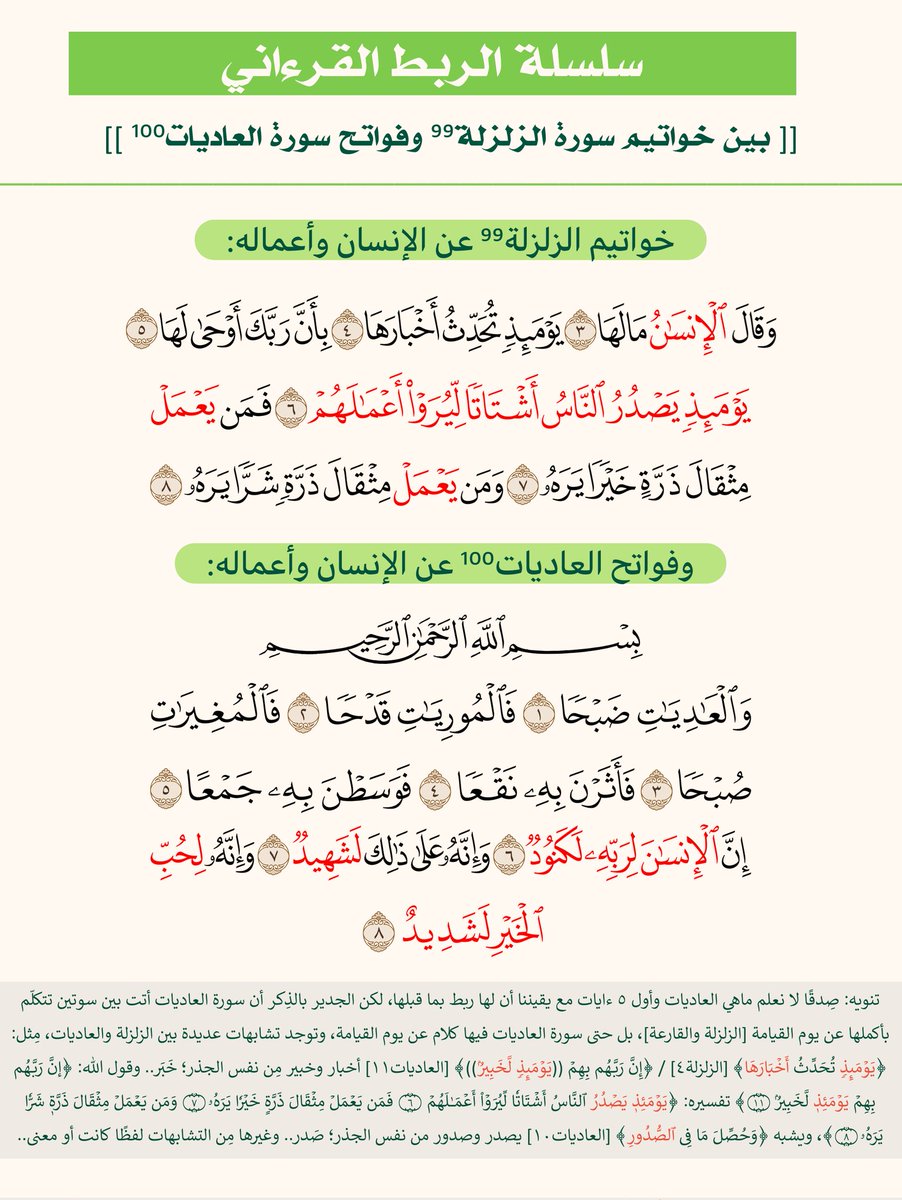 سلسلة الربط القرءاني
[[ بين خواتيم سورة الزلزلة⁹⁹ وفواتح سورة العاديات¹⁰⁰ ]]
خواتيم الزلزلة⁹⁹ عن الإنسان وأعماله:
وَقَالَ ٱلْإِنسَٰنُ مَا لَهَا ٣ يَوْمَئِذٍ تُحَدِّثُ أَخْبَارَهَا ٤ بِأَنَّ رَبَّكَ أَوْحَىٰ لَهَا ٥
يَوْمَئِذٍ يَصْدُرُ ٱلنَّاسُ أَشْتَاتًا لِّيُرَوْا۟ أَعْمَٰلَهُمْ ٦ فَمَن يَعْمَلْ
مِثْقَالَ ذَرَّةٍ خَيْرًا يَرَهُۥ ٧ وَمَن يَعْمَلْ مِثْقَالَ ذَرَّةٍ شَرًّا يَرَهُۥ ٨
وفواتح العاديات¹⁰⁰ عن الإنسان وأعماله:
بِسْمِ ٱللَّهِ ٱلرَّحْمَٰنِ ٱلرَّحِيمِ
وَٱلْعَٰدِيَٰتِ ضَبْحًا ١ فَٱلْمُورِيَٰتِ قَدْحًا ٢ فَٱلْمُغِيرَٰتِ
صُبْحًا ٣ فَأَثَرْنَ بِهِۦ نَقْعًا ٤ فَوَسَطْنَ بِهِۦ جَمْعًا ٥
إِنَّ ٱلْإِنسَٰنَ لِرَبِّهِۦ لَكَنُودٌ ٦ وَإِنَّهُۥ عَلَىٰ ذَٰلِكَ لَشَهِيدٌ ٧ وَإِنَّهُۥ لِحُبِّ
ٱلْخَيْرِ لَشَدِيدٌ ٨
تنويه: صِدقًا لا نعلم ماهي العاديات وأول ٥ ءايات مع يقيننا أن لها ربط بما قبلها، لكن الجدير بالذِكر أن سورة العاديات أتت بين سوتين تتكلّم
بأكملها عن يوم القيامة [الزلزلة والقارعة]، بل حتى سورة العاديات فيها كلام عن يوم القيامة، وتوجد تشابهات عديدة بين الزلزلة والعاديات، مِثل:
﴿يَوْمَئِذٍ تُحَدِّثُ أَخْبَارَهَا﴾ [الزلزلة٤] / ﴿إِنَّ رَبَّهُم بِهِمْ ((يَوْمَئِذٍ لَّخَبِيرٌۢ))﴾ [العاديات١١] أخبار وخبير مِن نفس الجذر؛ خَبَر.. وقول الله: ﴿إِنَّ رَبَّهُم
بِهِمْ يَوْمَئِذٍ لَّخَبِيرٌۢ ١١﴾ تفسيره: ﴿يَوْمَئِذٍ يَصْدُرُ ٱلنَّاسُ أَشْتَاتًا لِّيُرَوْا۟ أَعْمَٰلَهُمْ ٦ فَمَن يَعْمَلْ مِثْقَالَ ذَرَّةٍ خَيْرًا يَرَهُۥ ٧ وَمَن يَعْمَلْ مِثْقَالَ ذَرَّةٍ شَرًّا
يَرَهُۥ ٨﴾، ويشبه ﴿وَحُصِّلَ مَا فِى ٱلصُّدُورِ﴾ [العاديات١٠] يصدر وصدور من نفس الجذر؛ صَدر.. وغيرها مِن التشابهات لفظًا كانت أو معنى..